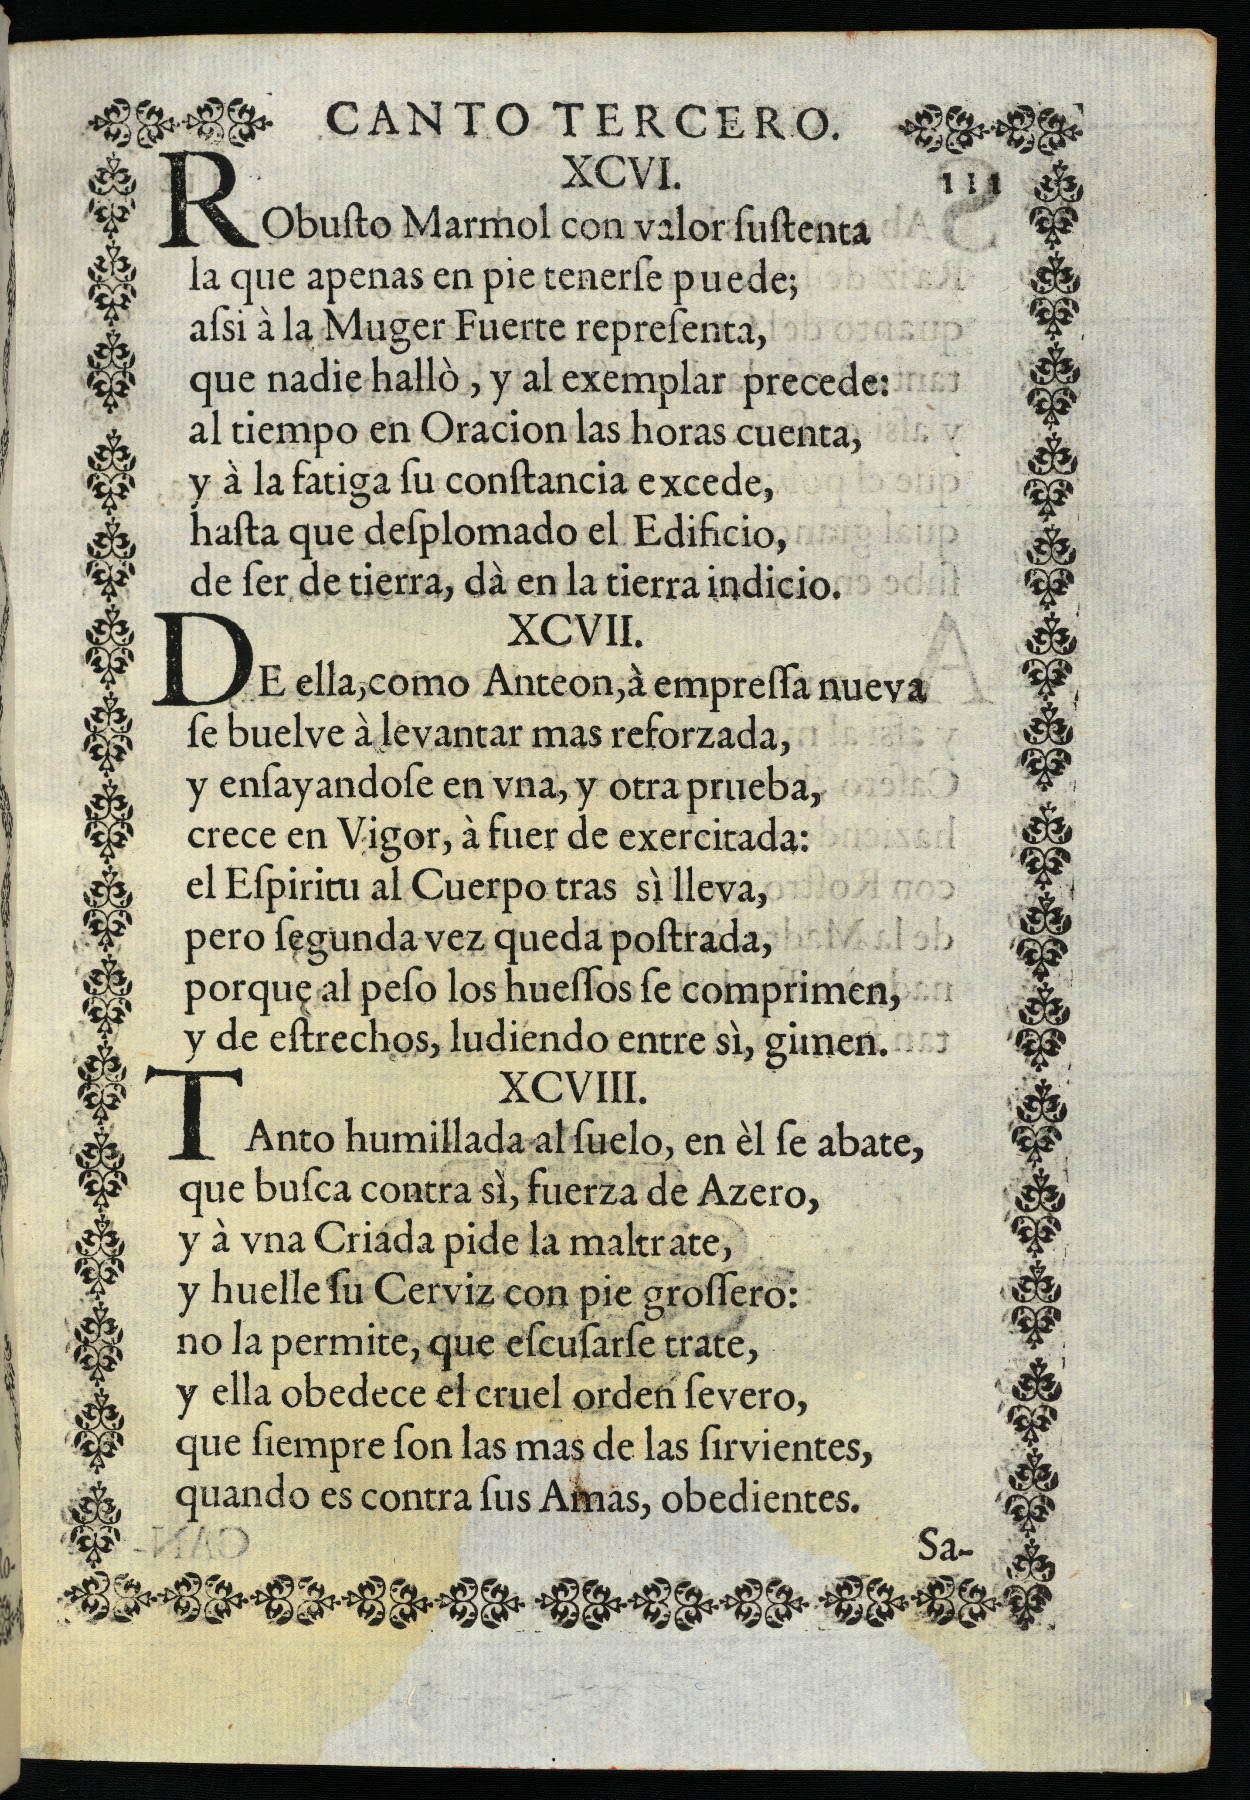 CANTO TERCERO.
XCVI.
111
RObuſto Marmol con valor ſuſtenta
la que apenas en pie tenerſe puede;
aſsi à la Muger Fuerte repreſenta,
que nadie hallò, y al exemplar precede:
al tiempo en Oracion las horas cuenta,
y à la fatiga ſu conſtancia excede,
haſta que deſplomado el Edificio,
de ſer de tierra, dà en la tierra indicio.
XCVII.
DE ella, como Anteon, à empreſſa nueva
ſe buelve à levantar mas reforzada,
y enſayandoſe en vna, y otra prueba,
crece en Vigor, à fuer de exercitada:
el Eſpiritu al Cuerpo tras sì lleva,
pero ſegunda vez queda poſtrada,
porque al peſo los hueſſos ſe comprimen,
y de eſtrechos, ludiendo entre sì, gimen.
XCVIII.
TAnto humillada al ſuelo, en èl ſe abate,
que buſca contra sì, fuerza de Azero,
y à vna Criada pide la maltrate,
y huelle ſu Cerviz con pie groſſero:
no la permite, que eſcuſarſe trate,
y ella obedece el cruel orden ſevero,
que ſiempre ſon las mas de las ſirvientes,
quando es contra ſus Amas, obedientes.
Sa-